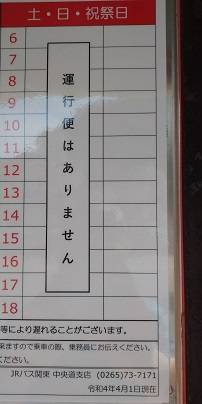 土・日・祝祭日
6
7
8
9
10
11
12
13
14
15
16
17
18
運行便はありません
等により遅れることがございます。
来ますので乗車の際、乗務員にお伝えください。
ください。
JRバス関東 中央道支店 (0265)73-7171
令和4年4月1日現在